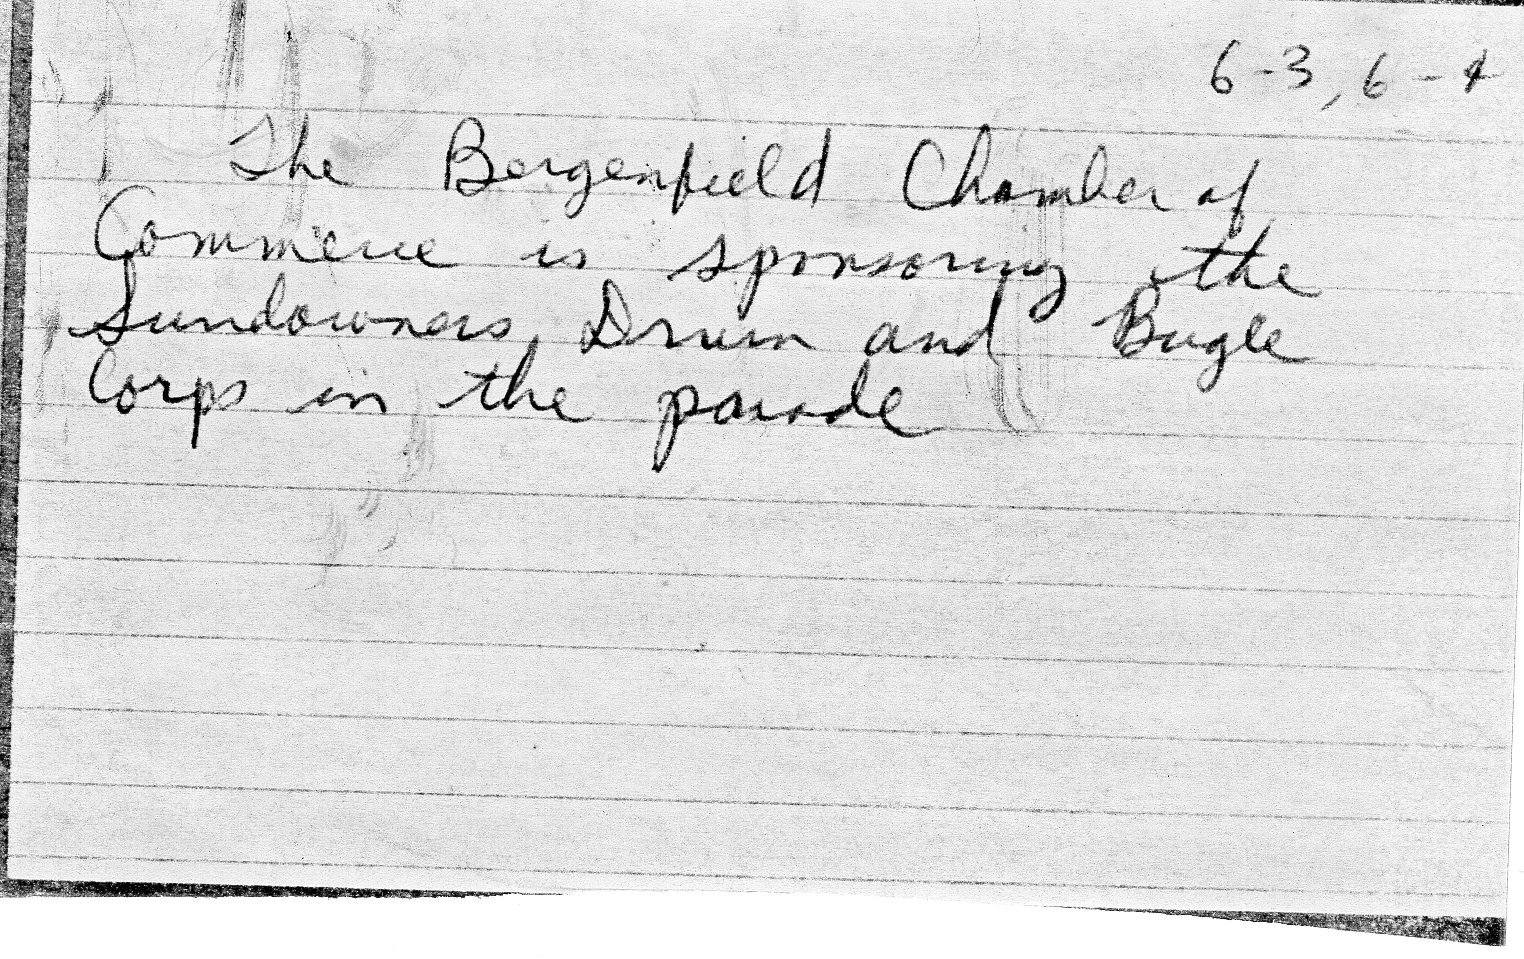 6-3, 6-4
The Bergenfield Chamber of
Commerce is sponsoring the
Sundowners Drum and Bugle
Corps in the parade